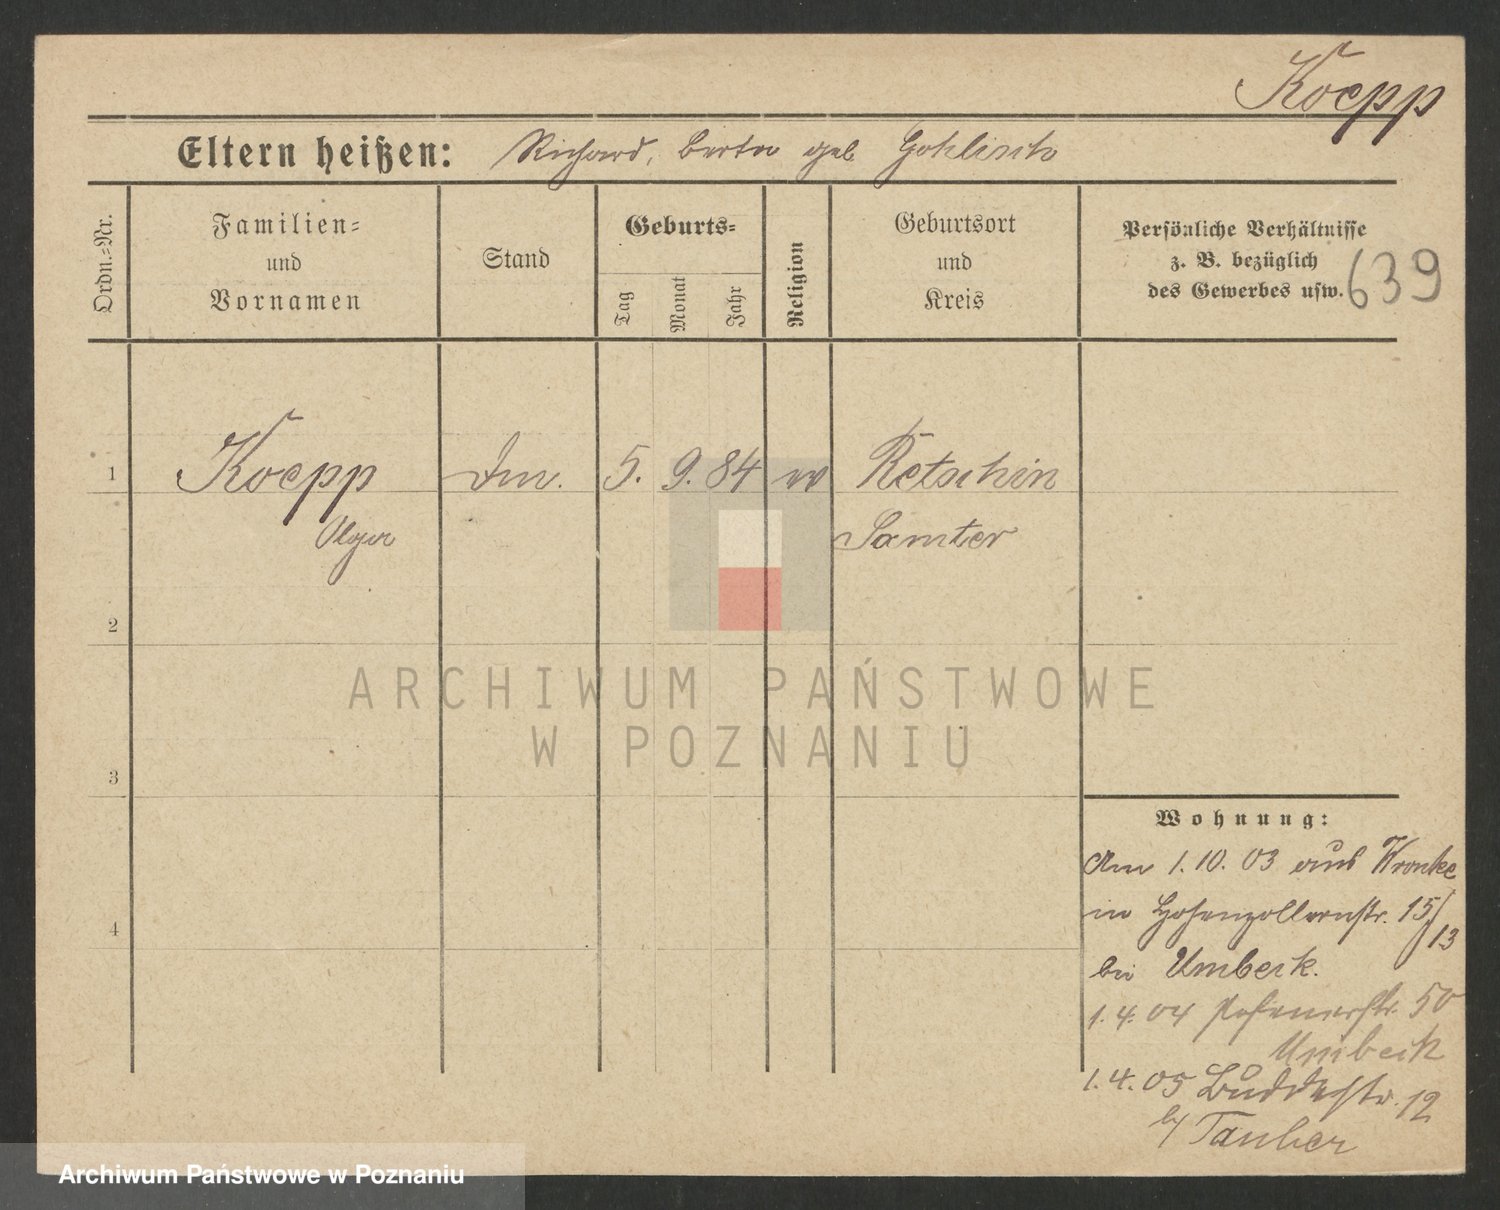 Koepp
Eltern heißen: Richard, Berta geb Gohlisch
Ordn.-Nr.
Familien- und Vornamen
Stand
Geburts-
Tag
Monat
Jahr
Religion
Geburtsort und Kreis
Persönliche Verhältnisse
z. B. bezüglich
des Gewerbes usw.
639
1 Koepp 5. 9. 84 Retschin
Olga Samter
2
3
4
ARCHIWUM PAŃSTWOWE
W POZNANIU
Wohnung:
Am 1.10.03 aus Wronke
in Hohenzollernstr. 15/13
bei Umbeck.
1.4.04 Posenerstr. 50
Umbeck
1.4.05 Buddestr. 12
b/ Tauber
Archiwum Państwowe w Poznaniu